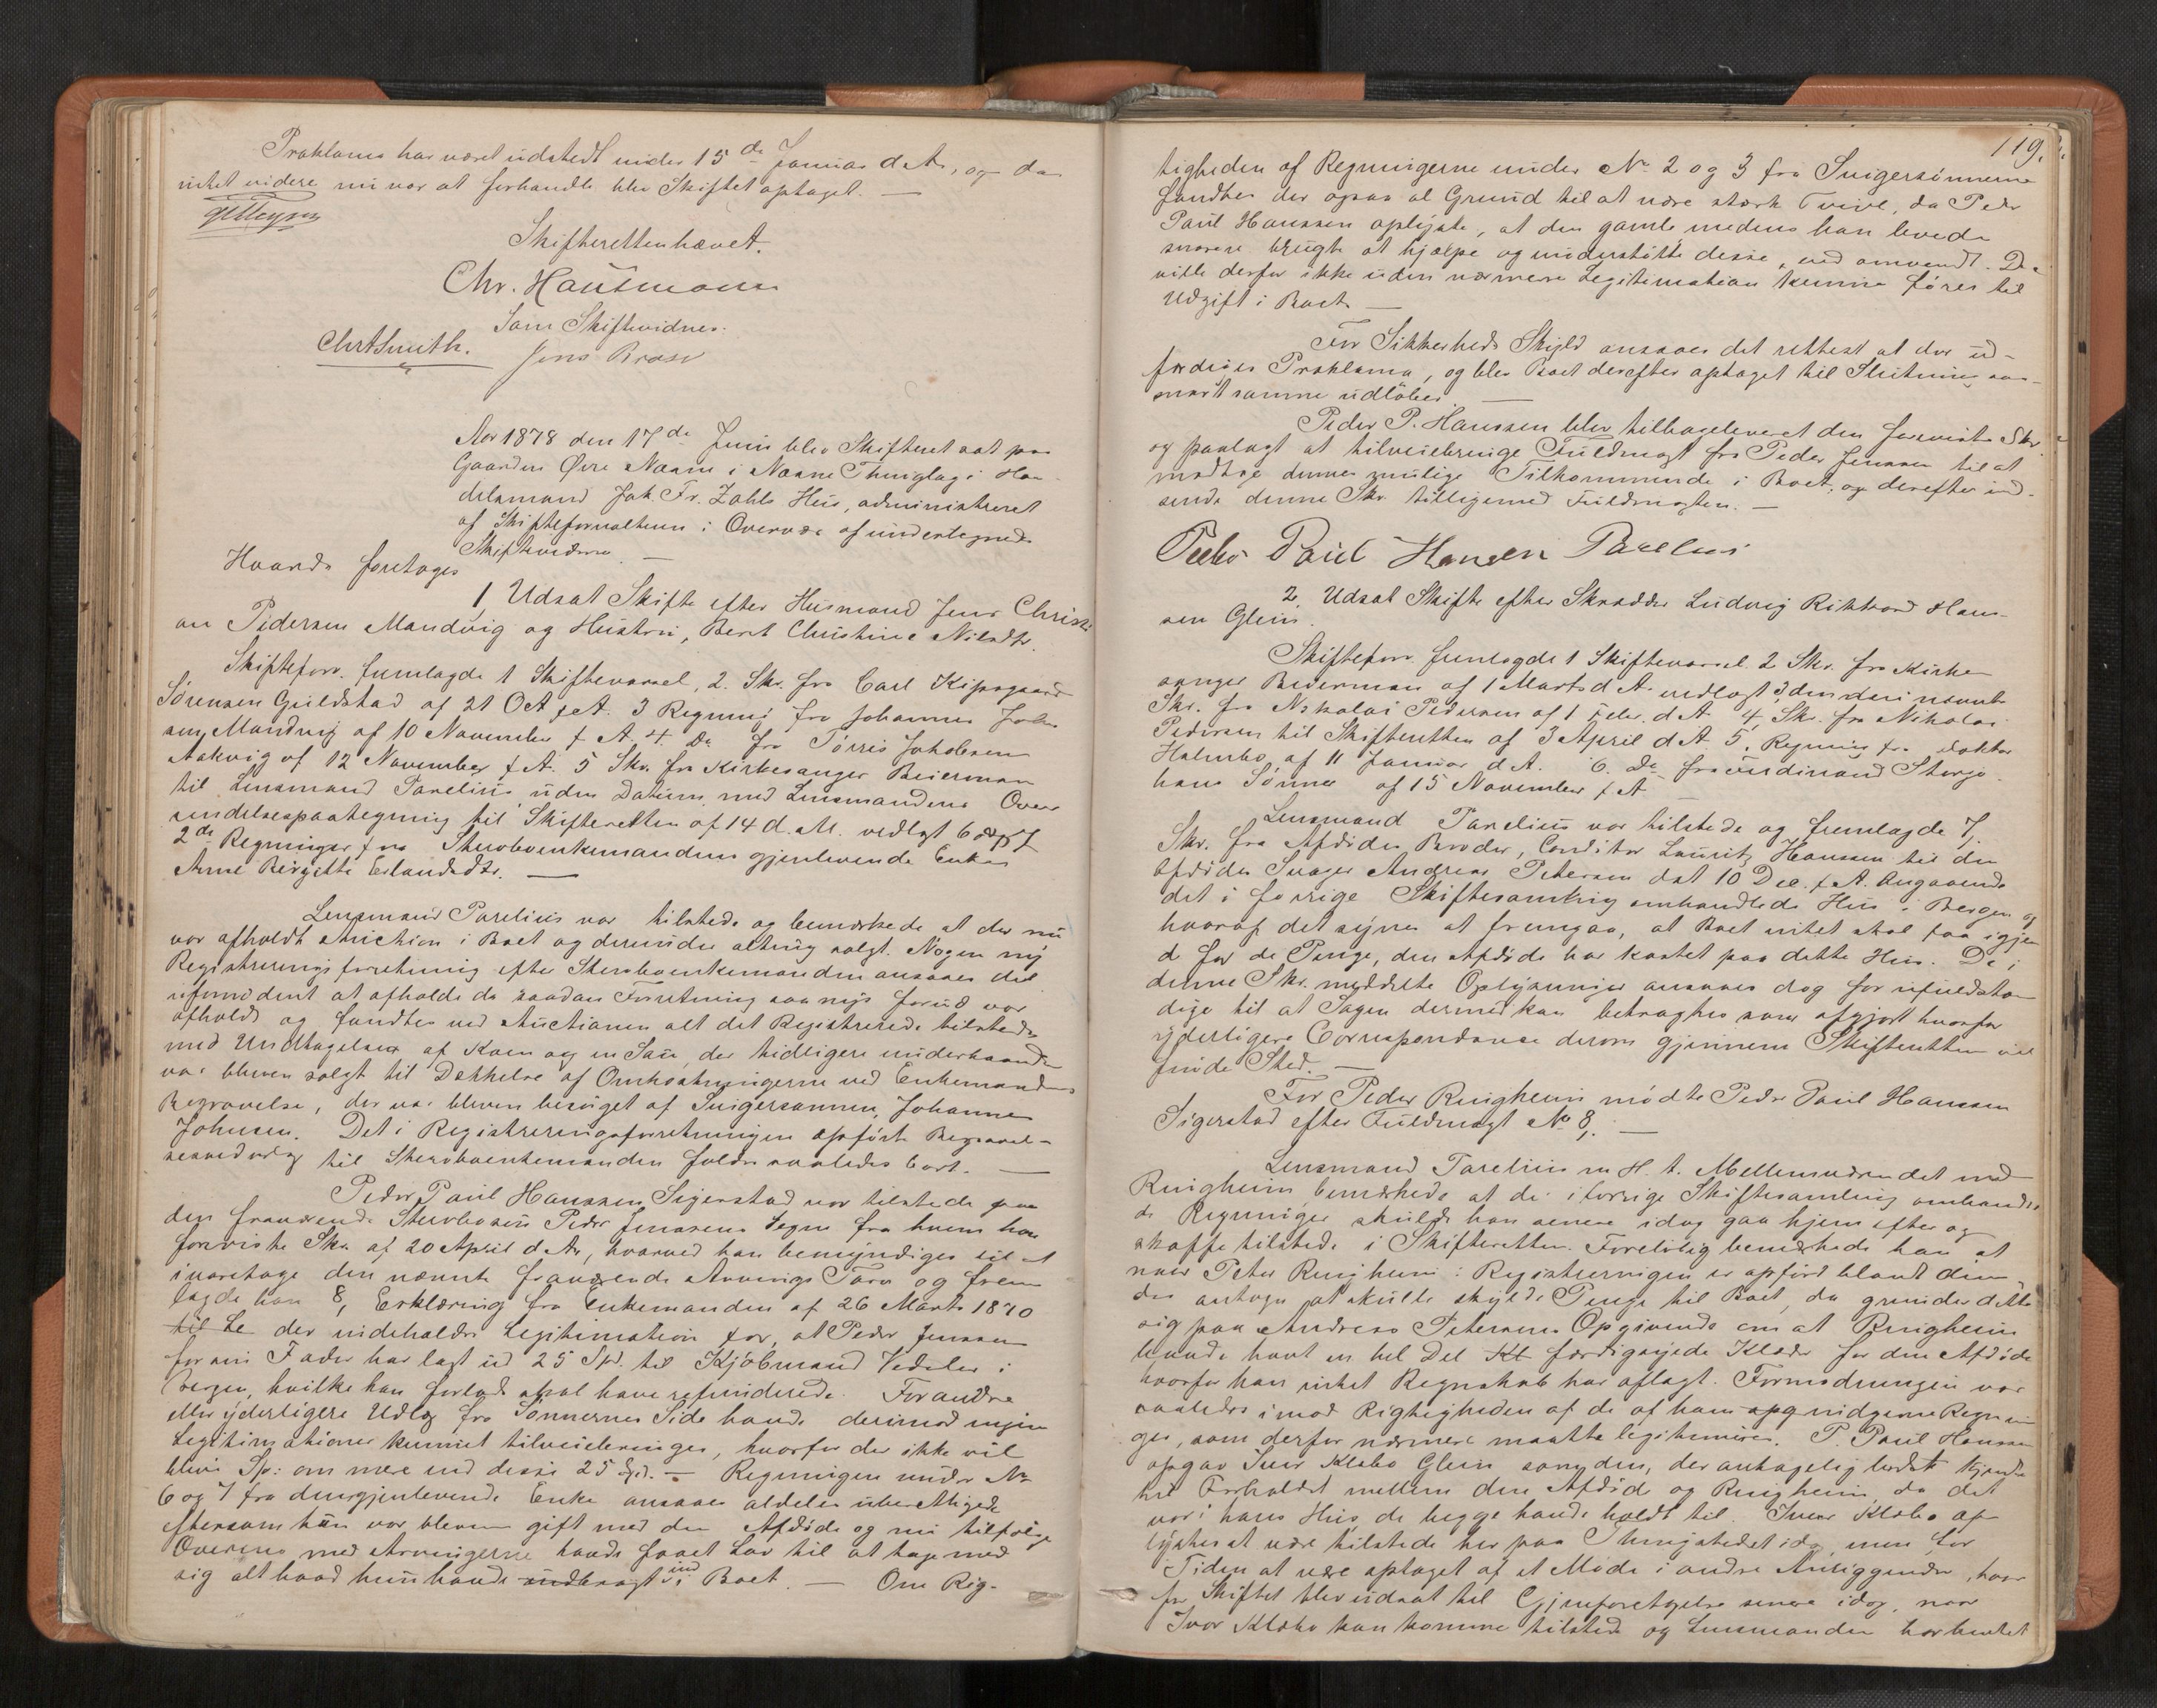 Proklama har været udstedt under 15de Januar d. A., og da
intet videre nu var at forhandle blev Skiftet optaget. —
Skifteretten hævet.
Chr. Hausmann
Som Skiftevidner.
Chr. A Smith. Jens
Aar 1878 den 17de Juni blev Skifteret sat paa
Gaarden Øvre Næsne i Næsne Thinglag i Han-
delsmand Joh. Fr. Zahls Hus, administreret
af Skifteforvalteren i Overvær af undertegnede
Skiftevidner. —
Hvorda foretoges
1, Udsat Skifte efter Husmand Jens Christi-
an Pedersen Mandvig og Hustru, Berit Christine Nilsdtr.
Skifteforv. fremlagde 1 Skiftevarsel, 2. Skr. fra Carl
Sørensen Guldstad af 21 Oct f. A. 3 Regning fra Johannes John-
sen Mandvig af 10 November f. A. 4. Do fra Tørris Jakobsen
Aakvig af 12 November f. A. 5 Skr. fra Kirkesanger Beierman
til Lensmand Parelius uden Datum med Lensmandens Over-
sendelsespaategning til Skifteretten af 14 d. M. vedlagt 6 og 7
2de Regninger fra Stervboenkemandens gjenlevende Enke
Anne Birgitte Erlandsdtr. —
Lensmand Parelius var tilstede og bemærkede at der nu
var afholdt Auction i Boet og derunder alting solgt. Nogen ny
Registreringsforretning efter Stervboenkemanden ansaaes det
ufornødent at afholde da saadan Forretning saa nys forud var
afholdt og fandtes ved Auctionen alt det Registrerede tilstede
med Undtagelse af Koen og en Sau, der tidligere underhaanden
var bleven solgt til Dækkelse af Omkostningerne ved Enkemandens
Begravelse, der var bleven besørget af Svigersønnen, Johannes
Johnsen. Det i Registreringsforretningen opførte Begravel-
sesudlæg til Stervboenkemanden falder saaledes bort. —
Peder Paul Hanssen Sigerstad var tilstede paa
den fraværende Stervbosøn Peder Jenssens Vegne fra hvem han
foreviste Skr. af 20 April d. A., hvorved han bemyndiges til at
ivaretage den nævnte fraværende Arvings Tarv og frem-
lagde han 8, Erklæring fra Enkemanden af 26 Marts 1870
til Le der indeholder Legitimation for, at Peder Jenssen
for sin Fader har lagt ud 25 Spd. til Kjøbmand Vedeler i
Bergen, hvilke han forlods skal have refunderede. For andre
eller yderligere Udlæg fra Sønnernes Side havde derimod ingen
Legitimationer kunnet tilveiebringes, hvorfor der ikke vil
blive Sp: om mere end disse 25 Spd. — Regningen under No
6 og 7 fra den gjenlevende Enke ansaaes aldeles uberettigede
eftersom hun var bleven gift med den Afdøde og nu tilfølge
Overens med Arvingerne havde faaet Lov til at tage med
sig alt hvad hun havde indbragt ind i Boet. — Om Rig-
119.
tigheden af Regningerne under No 2 og 3 fra Svigersønnerne
fandtes der ogsaa al Grund til at nære stærk Tvivl, da Peder
Paul Hanssen oplyste, at den gamle medens han levede
snarere brugte at hjælpe og understøtte disse, end omvendt. De
ville derfor ikke uden nærmere Legitimation kunne føres til
Udgift i Boet. —
For Sikkerheds Skyld ansaaes det rettest at der ud-
færdiges Proklama, og blev Boet derefter optaget til Slutning saa-
snart samme udløber. —
Peder P. Hanssen blev tilbageleveret den foreviste Skr.
og paalagt at tilveiebringe Fuldmagt fra Peder Jenssen til at
modtage dennes mulige Tilkommende i Boet, og derefter ind-
sende denne Skr. tilligemed Fuldmagten. —
Peder Paul Hansen Parelius
2, Udsat Skifte efter Skrædder Ludvig Rikhard Hans-
sen Glein.
Skifteforv. fremlagde 1 Skiftevarsel. 2 Skr. fra Kirke-
sanger Beierman af 1 Marts d. A. vedlagt 3, den deri nævnte
Skr. fra Nikolai Pedersen af 1 Febr. d. A. 4, Skr. fra Nikolai
Pedersen til Skifteretten af 3 April d. A. 5, Regning fra Doktor
Holmbo af 11 Januar d. A. 6. Do fra Ferdinand Storjo-
hans Sønner af 15 November f. A. —
Lensmand Parelius var tilstede og fremlagde 7,
Skr. fra Afdødes Broder, Conditor Lauritz Hanssen til den
Afdødes Svoger Andreas Petersen dat 10 Dec. f. A. angaaende
det i forrige Skiftesamling omhandlede Hus i Bergen og
hvoraf det synes at fremgaa, at Boet intet skal faa igjen
d for de Penge, den Afdøde har kostet paa dette Hus. De i
denne Skr. meddelte Oplysninger ansaaes dog for ufuldstæn-
dige til at Sagen dermed kan betragtes som afgjort hvorfor
yderligere Correspondance derom gjennem Skifteretten vil
finde Sted. —
For Peder Ringheim mødte Peder Paul Hanssen
Sigerstad efter Fuldmagt No 8,. —
Lensmand Parelius m H. t. Mellemværendet med
Ringheim bemærkede at de i forrige Skiftesamling omhandle-
de Regninger skulde han senere idag gaa hjem efter og
skaffe tilstede i Skifteretten. Foreløbig bemærkede han at
naar Peter Ringheim i Registreringen er opført blandt dem
der antoges at skulle skylde Penge til Boet, da grunder dette
sig paa Andreas Petersens Opgivende om at Ringheim
havde havt en hel Del Kl færdigsyede Klæder for den Afdøde
hvorfor han intet Regnskab har aflagt. Formodningen var
saaledes imod Rigtigheden af de af ham Regnin-
ger, som derfor nærmere maatte legitimeres. P. Paul Hanssen
opgav Iver Klæbo Glein som den, der antagelig bedst kjendte
til Forholdet mellem den Afdøde og Ringheim, da det
var i hans Hus, de begge havde holdt til. Iver Klæbo op-
lystes at være tilstede her paa Thingstedet idag, men for
Tiden at være optaget af et Møde i andre Anliggender, hvor-
for Skiftet blev udsat til Gjenforetagelse senere idag, naar
Iver Klæbo kan komme tilstede og Lensmanden har hentet